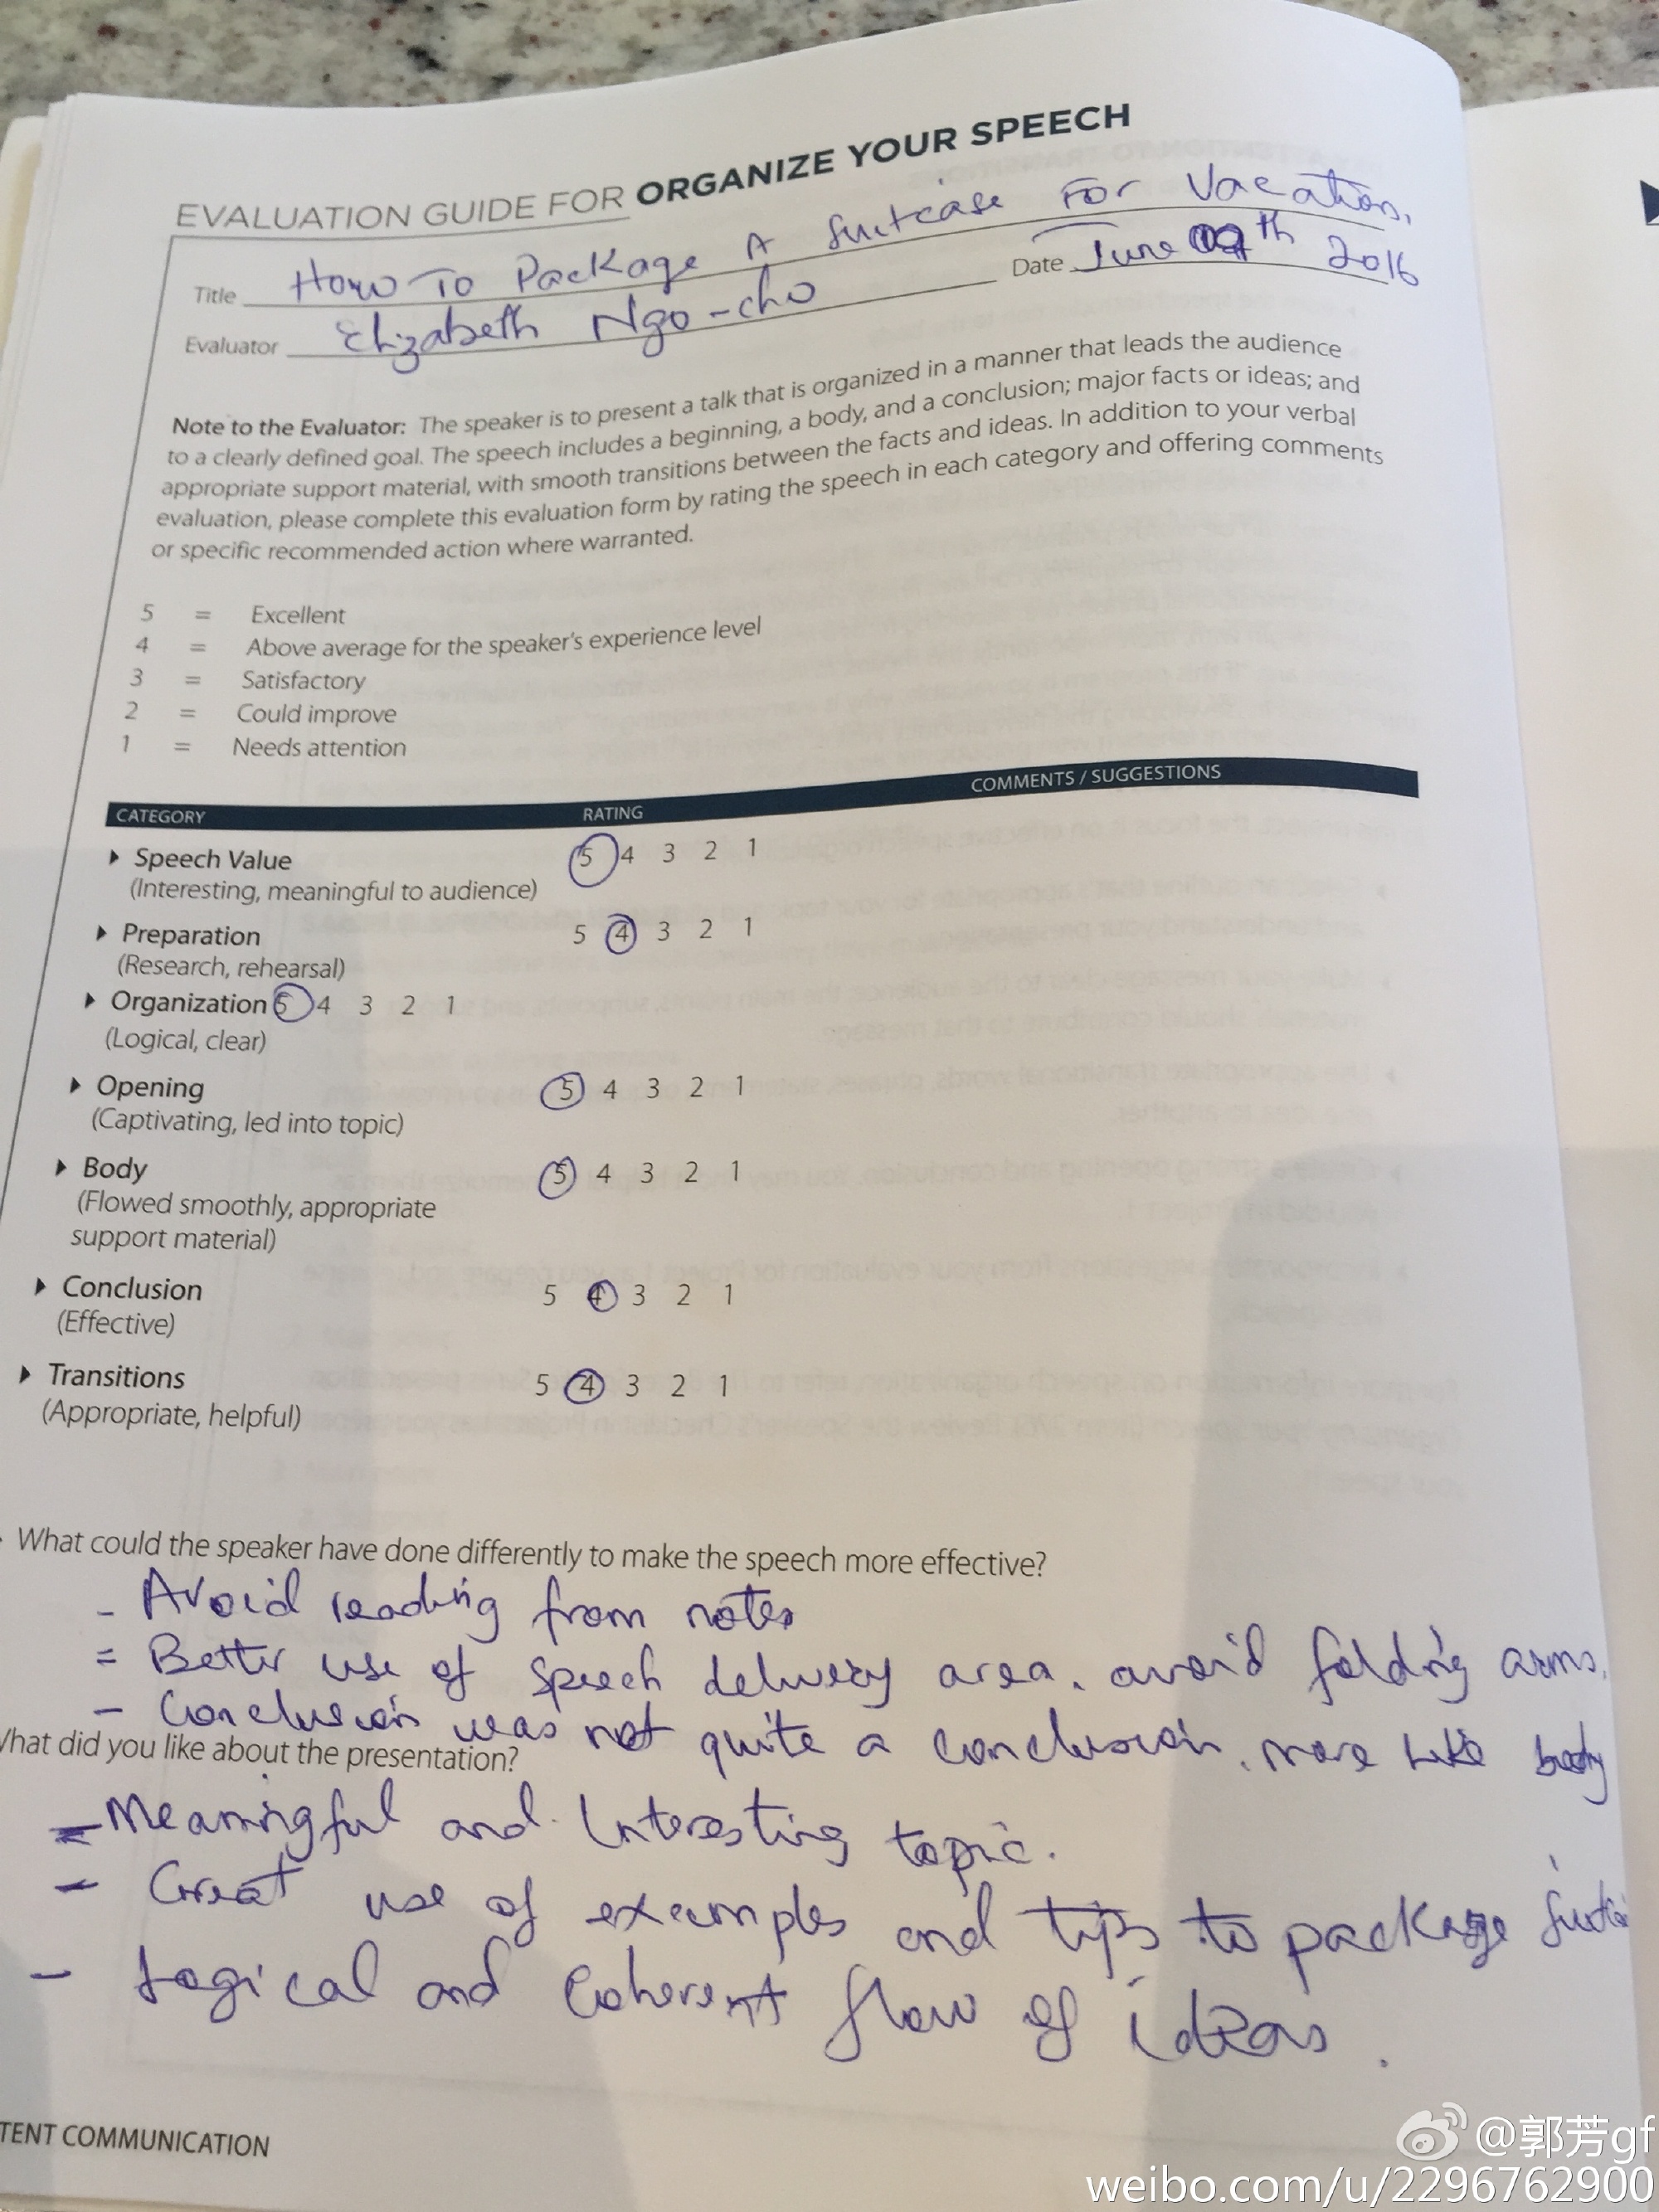 EVALUATION GUIDE FOR ORGANIZE YOUR SPEECH
Title How To Package A Suitcase For Vacation.
Date June 09th 2016
Evaluator Elizabeth Ngo-cho
Note to the Evaluator: The speaker is to present a talk that is organized in a manner that leads the audience
to a clearly defined goal. The speech includes a beginning, a body, and a conclusion; major facts or ideas; and
appropriate support material, with smooth transitions between the facts and ideas. In addition to your verbal
evaluation, please complete this evaluation form by rating the speech in each category and offering comments
or specific recommended action where warranted.
5 = Excellent
4 = Above average for the speaker's experience level
3 = Satisfactory
2 = Could improve
1 = Needs attention
CATEGORY RATING COMMENTS / SUGGESTIONS
Speech Value 5 4 3 2 1
(Interesting, meaningful to audience)
Preparation 5 4 3 2 1
(Research, rehearsal)
Organization 5 4 3 2 1
(Logical, clear)
Opening 5 4 3 2 1
(Captivating, led into topic)
Body 5 4 3 2 1
(Flowed smoothly, appropriate
support material)
Conclusion 5 4 3 2 1
(Effective)
Transitions 5 4 3 2 1
(Appropriate, helpful)
What could the speaker have done differently to make the speech more effective?
- Avoid reading from notes
= Better use of speech delivery area. avoid folding arms.
- Conclusion was not quite a conclusion. more like body
What did you like about the presentation?
- Meaningful and Interesting topic.
- Great use of examples and tips to package
- Logical and Coherent flow of ideas.
TENT COMMUNICATION
@郭芳gf
weibo.com/u/2296762900